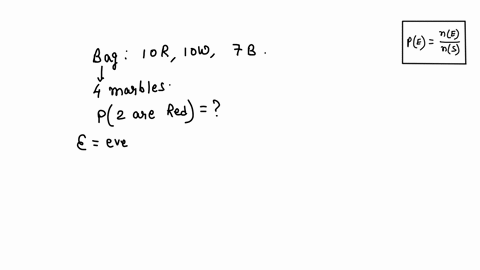 Bag: 10R, 10W, 7B.
4 marbles.
P(2 are Red) = ?
E = eve
P(E) = n(E)/n(S)